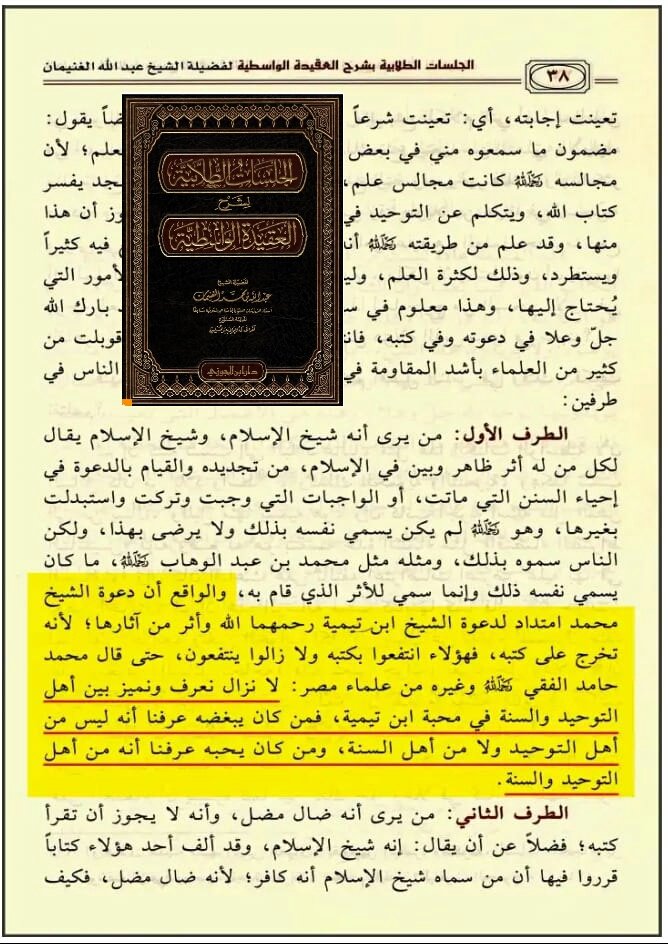 الجلسات الطلابية بشرح العقيدة الواسطية لفضيلة الشيخ عبد الله الغنيمان
٣٨
تعينت إجابته، أي: تعينت شرعاً يقول:
مضمون ما سمعوه مني في بعض لأن
مجالسه رحمه الله كانت مجالس علم، يفسر
كتاب الله، ويتكلم عن التوحيد في أن هذا
منها، وقد علم من طريقته رحمه الله فيه كثيراً
ويستطرد، وذلك لكثرة العلم، التي
يُحتاج إليها، وهذا معلوم في بارك الله
جلّ وعلا في دعوته وفي كتبه، قوبلت من
كثير من العلماء بأشد المقاومة في الناس في
طرفين:
الجلسات الطلابية
لشرح
العقيدة الواسطية
لفضيلة الشيخ
دار ابن الجوزي
الطرف الأول: من يرى أنه شيخ الإسلام، وشيخ الإسلام يقال
لكل من له أثر ظاهر وبين في الإسلام، من تجديده والقيام بالدعوة في
إحياء السنن التي ماتت، أو الواجبات التي وجبت وتركت واستبدلت
بغيرها، وهو رحمه الله لم يكن يسمي نفسه بذلك ولا يرضى بهذا، ولكن
الناس سموه بذلك، ومثله مثل محمد بن عبد الوهاب رحمه الله، ما كان
يسمي نفسه ذلك وإنما سمي للأثر الذي قام به، والواقع أن دعوة الشيخ
محمد امتداد لدعوة الشيخ ابن تيمية رحمهما الله وأثر من آثارها؛ لأنه
تخرج على كتبه، فهؤلاء انتفعوا بكتبه ولا زالوا ينتفعون، حتى قال محمد
حامد الفقي رحمه الله وغيره من علماء مصر: لا نزال نعرف ونميز بين أهل
التوحيد والسنة في محبة ابن تيمية، فمن كان يبغضه عرفنا أنه ليس من
أهل التوحيد ولا من أهل السنة، ومن كان يحبه عرفنا أنه من أهل
التوحيد والسنة.
الطرف الثاني: من يرى أنه ضال مضل، وأنه لا يجوز أن تقرأ
كتبه؛ فضلاً عن أن يقال: إنه شيخ الإسلام، وقد ألف أحد هؤلاء كتاباً
قرروا فيها أن من سماه شيخ الإسلام أنه كافر؛ لأنه ضال مضل، فكيف